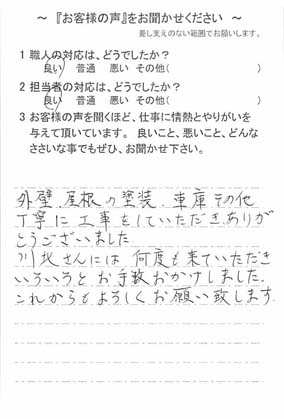 ～ 『お客様の声』をお聞かせください ～
差し支えのない範囲でお願いします。
1 職人の対応は、どうでしたか？
良い 普通 悪い その他( )
2 担当者の対応は、どうでしたか？
良い 普通 悪い その他( )
3 お客様の声を聞くほど、仕事に情熱とやりがいを
与えて頂いています。 良いこと、悪いこと、どんな
ささいな事でもぜひ、お聞かせ下さい。
外壁.屋根の塗装.車庫その他
丁寧に工事をしていただき.ありが
とうございました
川北さんには 何度も来ていただき
いろいろと お手数おかけしました.
これからも よろしく お願い致します.